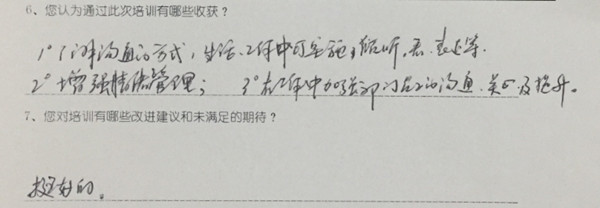 6、您认为通过此次培训有哪些收获？
1° 了解沟通的方式，生活、工作中可实施，倾听、看、表达等。
2° 增强情绪管理； 3° 在工作中加强部门员工的沟通、关心及提升。
7、您对培训有哪些改进建议和未满足的期待？
挺好的。